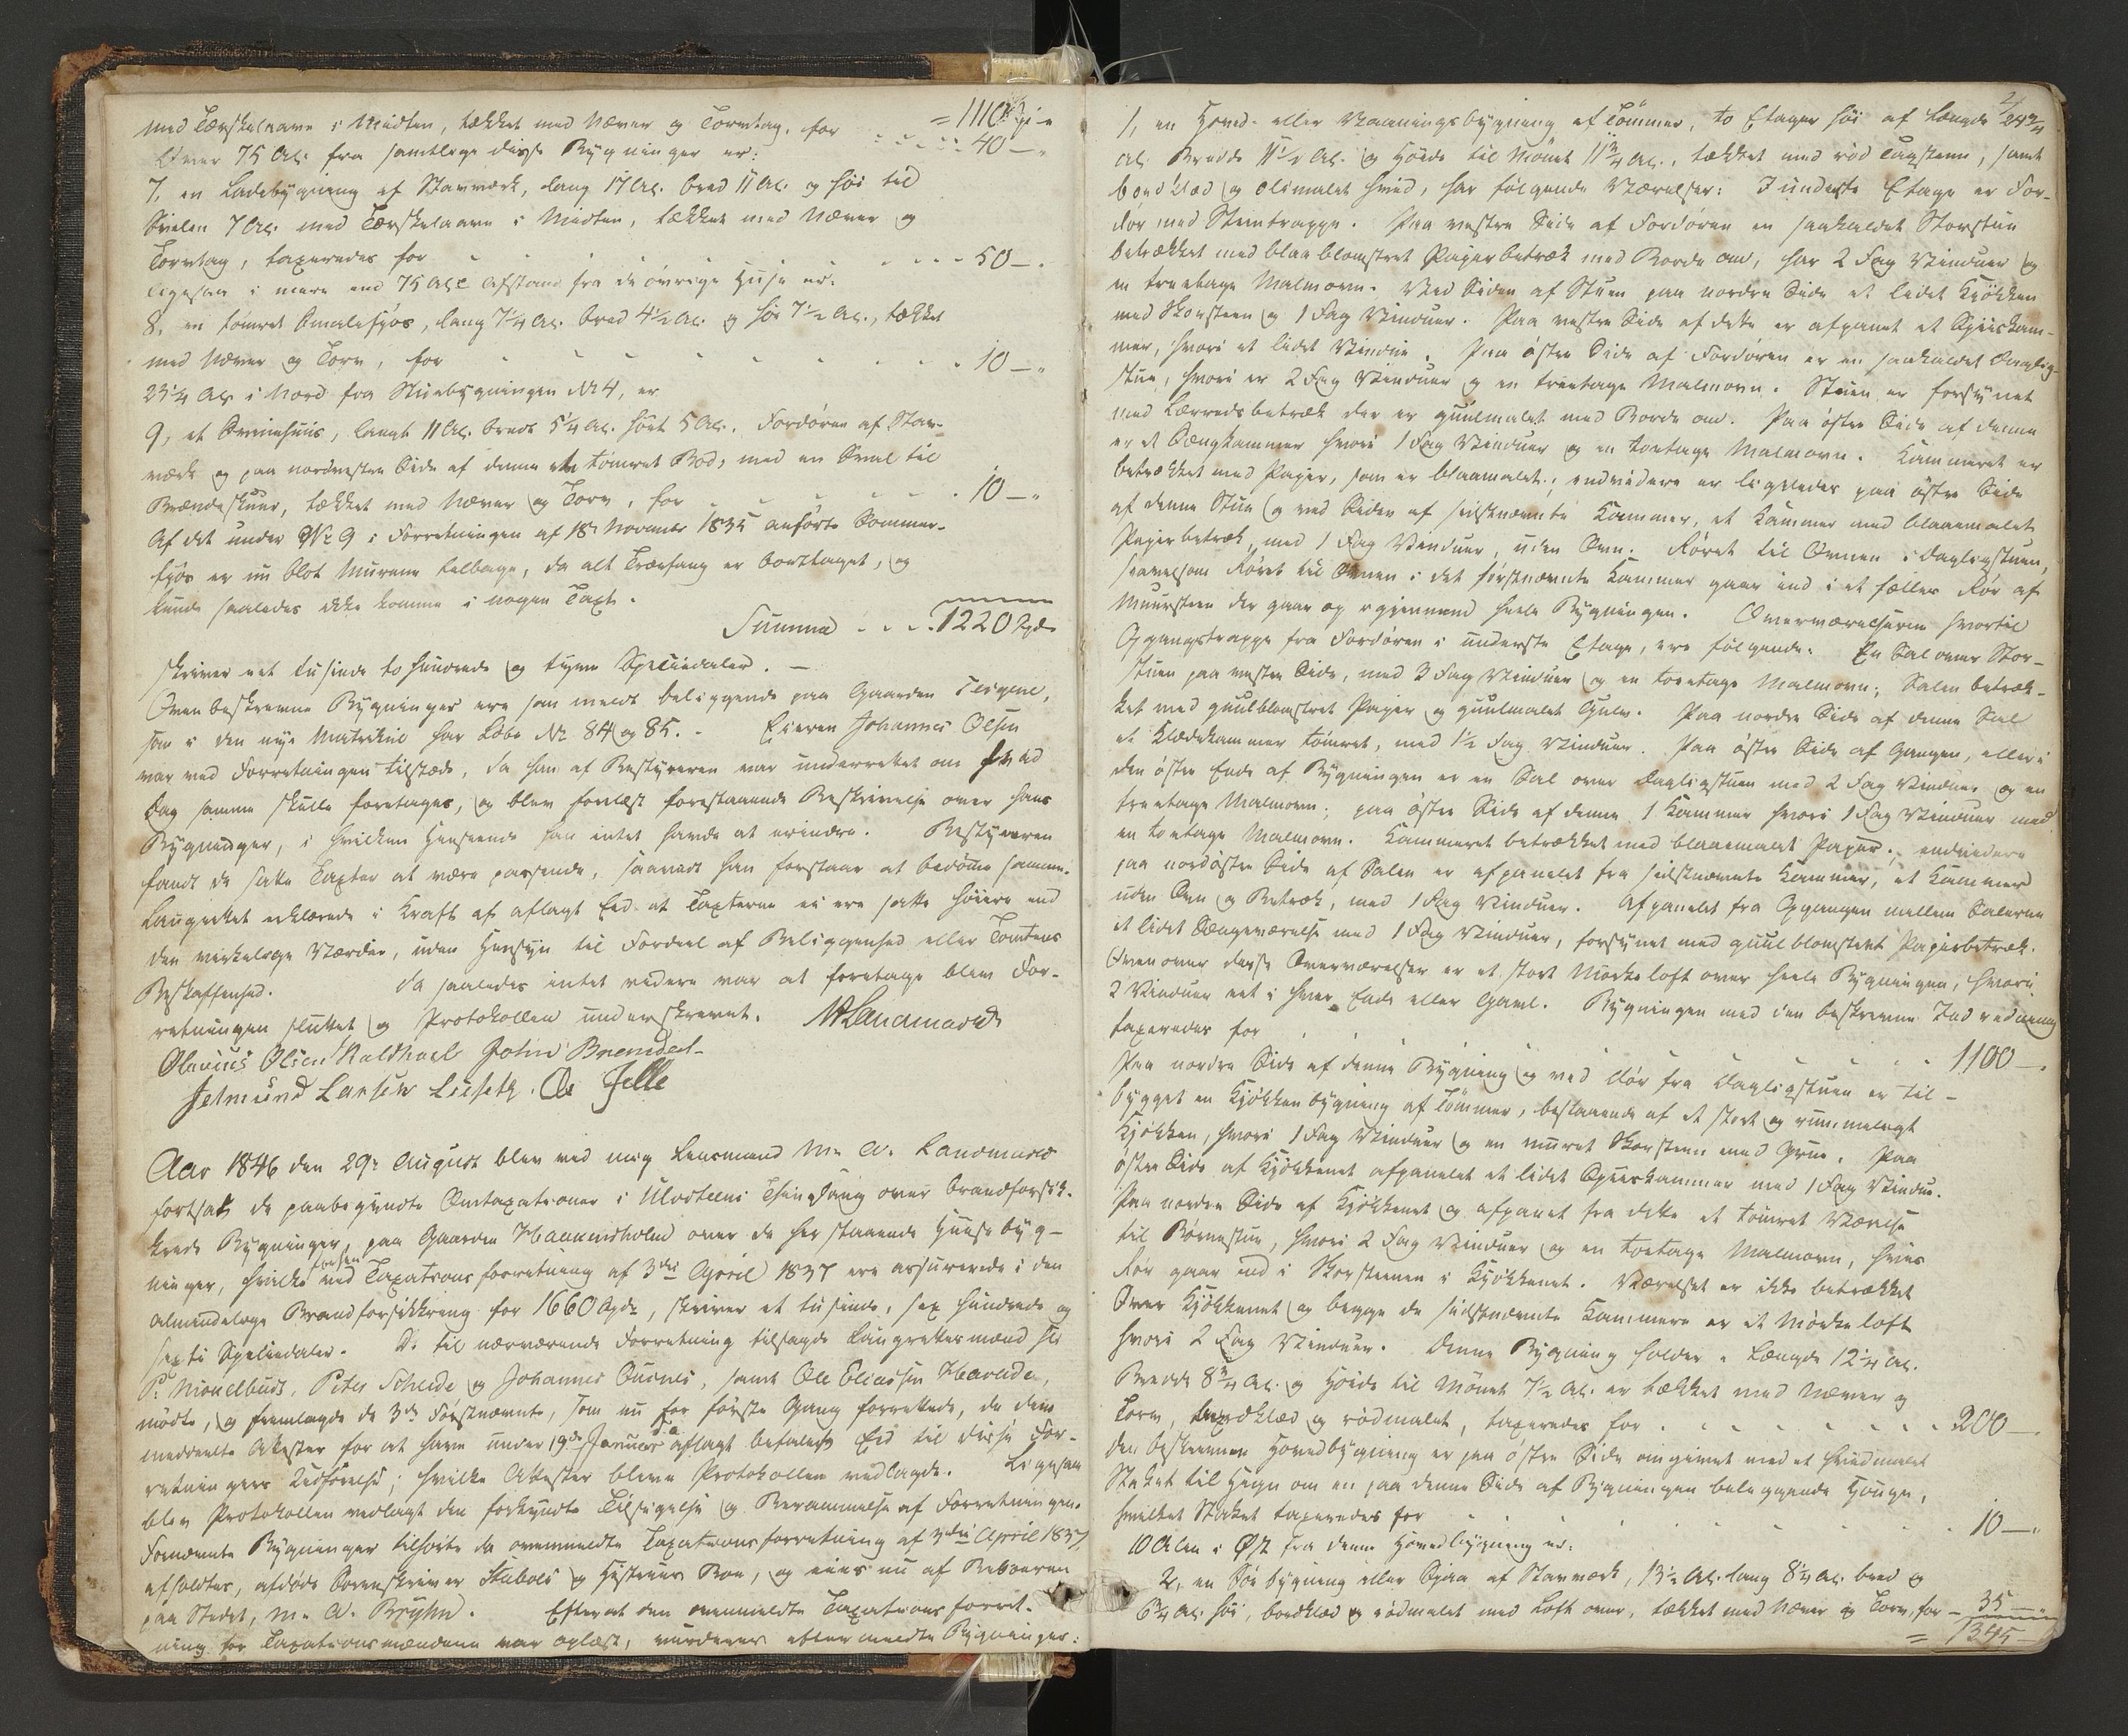 = 1110
med Tærskelaave i Midten, tækket med Næver og Torvtag, for - - - - 40 — "
Over 75 Al. fra samtlige disse Bygninger er:
7, en Ladebygning af Stavværk, lang 17 Al. bred 11 Al. og høi til
Svilen 7 Al. med Tærskelaave i Midten, tækket med Næver og
Torvtag, taxeredes for - - - - 50 — "
ligesaa i mere end 75 Al. Afstand fra de øvrige Huse er:
8, en tømret Smalefjøs, lang 7 1/4 Al. bred 4 1/2 Al. og høi 7 1/2 Al., tækket
med Næver og Torv, for - - - - 10 — "
23 1/4 Al. i Nord fra Stuebygningen No 4, er
9, et Qværnhuus, langt 11 Al. bredt 5 1/4 Al. høit 5 Al. Fordøren af Stav-
værk og paa nordvestre Side af denne en tømret Bod, med en Sval til
Brændeskuur, tækket med Næver og Torv, for - - - - 10 — "
Af det under No 9 i Forretningen af 18 November 1835 anførte Sommer-
fjøs er nu blot Murene tilbage, da alt Træfang er borttaget, og
kunde saaledes ikke komme i nogen Taxt.
Summa - - - 1220 Spd.
skriver eet tusinde to hundrede og tyve Speciedaler. —
Ovenbeskrevne Bygninger ere som meldt beliggende paa Gaarden Teigene,
som i den nye Matrikul har Løbe No 84 og 85. - Eieren Johannes Olsen
var ved Forretningen tilstæde, da han af Bestyreren var underrettet om hvad
Dag samme skulle foretages, og blev forelæst forestaaende Beskrivelse over hans
Bygninger, i hvilken Henseende han intet havde at erindre. Bestyreren
fandt de satte Taxter at være passende, saavidt han forstaar at bedømme samme.
Laugrettet erklærede i Kraft af aflagt Eed at Taxterne ei ere satte høiere end
den virkelige Værdie, uden Hensyn til Fordeel af Beliggenhed eller Tomtens
Beskaffenhed. Da saaledes intet videre var at foretage blev For-
retningen sluttet og Protokollen underskrevet. MALandmark
Olavius Olsen Kaldhoel John Brendsdal
Jetmund Larsen Lietseth. Ole Jelle
Aar 1846 den 29 August blev ved mig Lensmand M. A. Landmark
fortsat de paabegyndte Omtaxationer i Ulvsteens Thinglaug over brandforsik-
krede Bygninger, paa Gaarden Haavnsholm over de her staaende Huusebyg-
ninger, hvilke ved Taxationsforretning af 3die April 1837 ere assurerede i den
almindelige Brandforsikkring for 1660 Spd., skriver et tusinde, sex hundrede og
sexti Speciedaler. De til nærværende Forretning tilsagde Laugrettesmænd
P. Myklebust, Peter Scheide og Johannes Qusnes, samt Ole Eliassen Hareide,
mødte, og fremlagde de 3de Førstnævnte, som nu for første Gang forrettede, de dem
meddeelte Attester for at have under 19de Januar d. a. aflagt befalede Eed til disse For-
retningers Udførelse; hvilke Attester bleve Protokollen vedlagde. Ligesaa
blev Protokollen vedlagt den forkyndte Tilsigelse og Berammelse af Forretningen.
Fornævnte Bygninger tilhørte da ovenmeldte Taxationsforretning af 3die April 1837
afholdtes, afdøde Sorenskriver Stabels og Hustrues Boe, og eies nu af Beboeren
paa Stedet, M. A. Bryhn. Efterat den ovenmeldte Taxationsforret-
ning for Taxationsmændene var oplæst, vurderes eftermeldte Bygninger:
2
1, en Hoved- eller Vaaningsbygning af Tømmer, to Etager høi af Længde 24 3/4
Al. Bredde 11 1/2 Al. og Høide til Mønet 11 3/4 Al., tækket med rød Tagsteen, samt
bordklæd og oliemalet hvid, har følgende Værelser: I underste Etage er For-
dør med Steentrappe. Paa vestre Side af Fordøren en saakaldet Storstue
betrækket med blaablomstret Papirbetræk med Borde om, har 2 Fag Vinduer og
en treetage Malmovn. Ved Siden af Stuen paa nordre Side et lidet Kjøkken
med Skorsteen og 1 Fag Vinduer. Paa vestre Side af dette er afpanet et Spiiskam-
mer, hvori et lidet Vindue. Paa østre Side af Fordøren er en saakaldet Daglig-
stue, hvori er 2 Fag Vinduer og en treetage Malmovn. Stuen er forsynet
med Lærredsbetræk der er guulmalet med Borde om. Paa østre Side af denne
er et Sengkammer hvori 1 Fag Vinduer og en toetage Malmovn. Kammeret er
betrækket med Papir, som er blaamalet; endvidere er ligeledes paa østre Side
af denne Stue og ved Siden af sidstnævnte Kammer, et Kammer med blaaemalet
Papirbetræk, med 1 Fag Vinduer, uden Ovn. Røret til Ovnen i Dagligstuen,
saavelsom Røret til Ovnen i det førstnævnte Kammer gaar ind i et fælles Rør af
Muursteen der gaar op igjennem heele Bygningen. Overværelserne hvortil
Opgangstrappe fra Fordøren i underste Etage, ere følgende: En Sal over Stor-
stuen paa vestre Side, med 3 Fag Vinduer og en toetage Malmovn; Salen betræk-
ket med guulblomstret Papir og guulmalet Gulv. Paa nordre Side af denne Sal
et Klædekammer tømret, med 1 1/2 Fag Vinduer. Paa østre Side af Gangen, eller i
den østre Ende af Bygningen er en Sal over Dagligstuen med 2 Fag Vinduer og en
treetage Malmovn; paa østre Side af denne 1 Kammer hvori 1 Fag Vinduer med
en toetage Malmovn. Kammeret betrækket med blaaemalet Papir; endvidere
paa nordøstre Side af Salen er afpanelet fra sidstnævnte Kammer, et Kammer
uden Ovn og Betræk, med 1 Fag Vinduer. Afpanelet fra Opgangen mellem Salerne
et lidet Sengeværelse med 1 Fag Vinduer, forsynet med guulblomstret Papirbetræk.
Ovenover disse Overværelser er et stort Mørkeloft over heele Bygningen, hvori
2 Vinduer eet i hver Ende eller Gavl. Bygningen med den beskrevne Indredning
taxeredes for - - - - 1100 — .
Paa nordre Side af denne Bygning og ved Dør fra Dagligstuen er til-
bygget en Kjøkkenbygning af Tømmer, bestaaende af et stort og rummeligt
Kjøkken, hvori 1 Fag Vinduer og en muret Skorsteen med Grue. Paa
østre Side af Kjøkkenet afpanelet et lidet Spiiskammer med 1 Fag Vindue.
Paa nordre Side af Kjøkkenet og afpanet fra dette et tømret Værelse
til Børnestue, hvori 2 Fag Vinduer og en toetage Malmovn, hvis
Rør gaar ind i Skorsteenen i Kjøkkenet. Værelset er ikke betrækket
Over Kjøkkenet og begge de sidstnævnte Kammere er et Mørkeloft
hvori 2 Fag Vinduer. Denne Bygning holder i Længde 12 1/4 Al.
Bredde 8 3/4 Al. og Høide til Mønet 7 1/2 Al. er tækket med Næver og
Torv, bordklæd og rødmalet, taxeredes for - - - - 200 — .
Den beskrevne Hovedbygning er paa østre Side omgivet med et hvidmalet
Staket til Hegn om en paa denne Side af Bygningen beliggende Houge,
hvilket Staket taxeredes for - - - - 10 — "
10 Alen i Øst fra denne Hovedbygning er:
2, en Søebygning eller Sjaa af Stavværk, 13 1/2 Al. lang 8 1/4 Al. bred og
6 3/4 Al. høi, bordklæd og rødmalet med Loft over, tækket med Næver og Torv, for — 35 —
= 1345 —